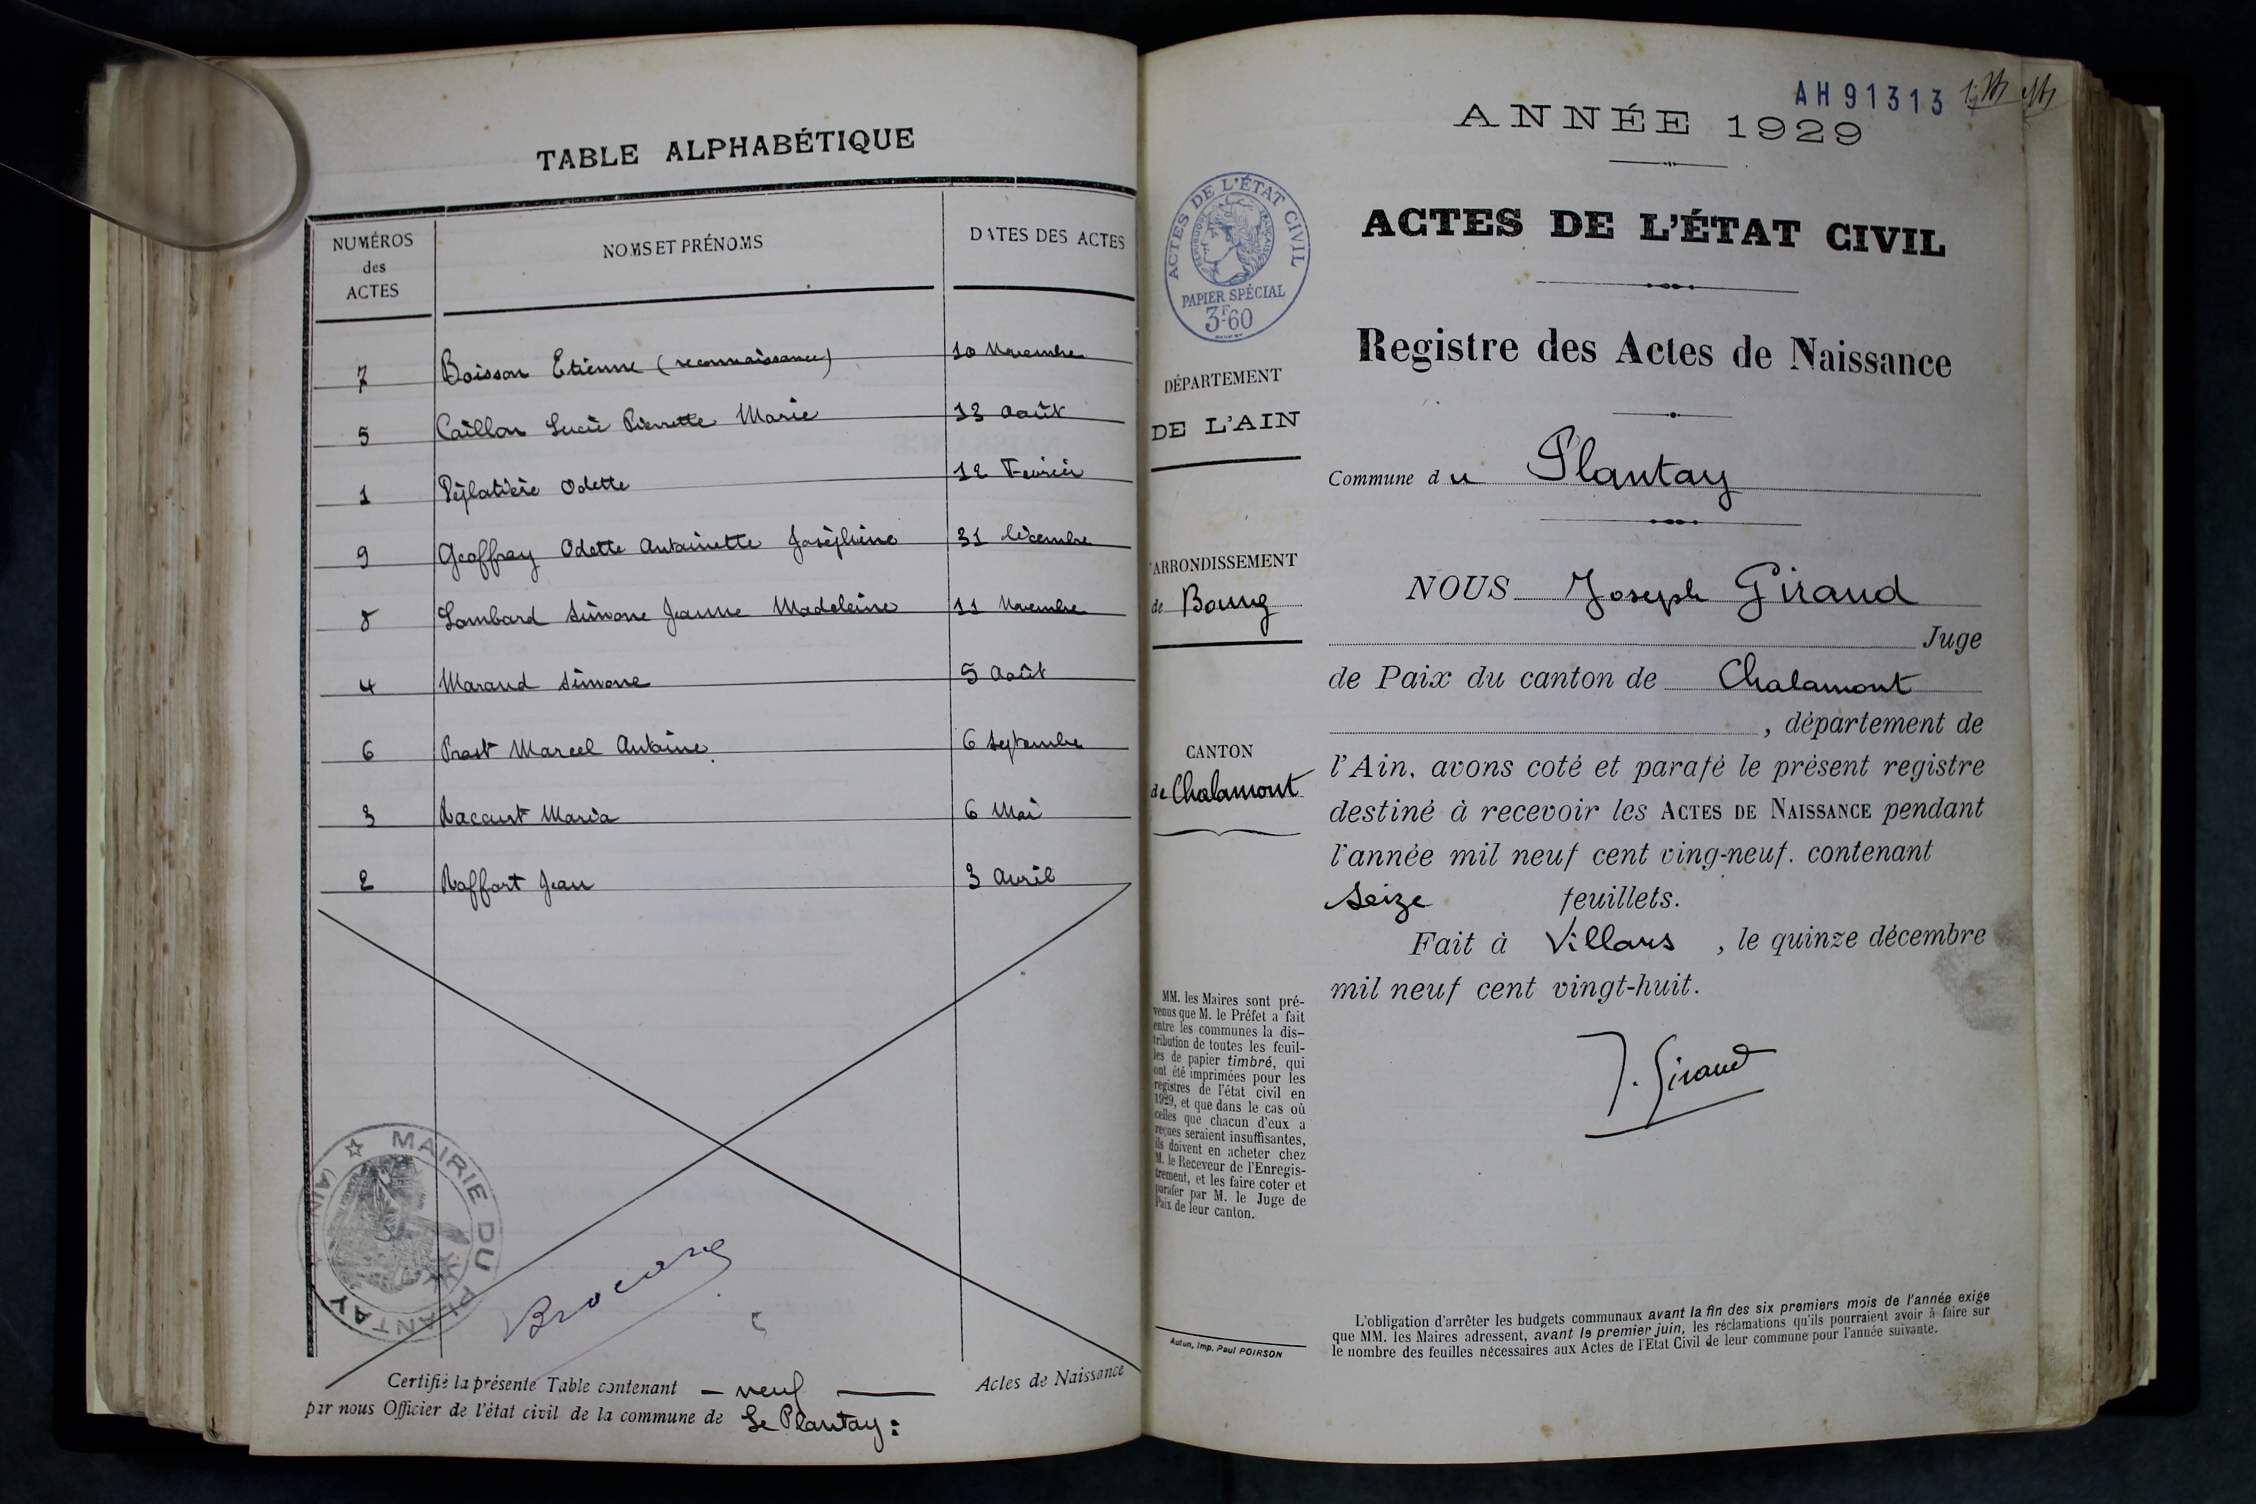 TABLE ALPHABÉTIQUE
NUMÉROS des ACTES NOMS ET PRÉNOMS DATES DES ACTES
7 Boisson Etienne (reconnaissance) 10 Novembre
5 Caillon Lucie Pierrette Marie 13 Août
1 Odette 12 Fevrier
9 Geoffray Odette Antoinette Josephine 31 Décembre
8 Lombard Simone Jeanne Madeleine 11 Novembre
4 Marand Simone 5 Août
6 Prost Marcel Antoine 6 Septembre
3 Racourt Maria 6 Mai
2 Raffort Jean 3 Avril
MAIRIE DU PLANTAY
(AIN)
Certifié la présente Table contenant — neuf — Actes de Naissance
par nous Officier de l'état civil de la commune de Le Plantay :
AH 91313
ANNÉE 1929
ACTES DE L'ÉTAT CIVIL
RÉPUBLIQUE FRANÇAISE
PAPIER SPÉCIAL
3F60
DÉPARTEMENT
DE L'AIN
ARRONDISSEMENT
de Bourg
CANTON
de Chalamont
MM. les Maires sont pré-
venus que M. le Préfet a fait
entre les communes la dis-
tribution de toutes les feuil-
les de papier timbré, qui
ont été imprimées pour les
registres de l'état civil en
1929, et que dans le cas où
celles que chacun d'eux a
reçues seraient insuffisantes,
ils doivent en acheter chez
M. le Receveur de l'Enregis-
trement, et les faire coter et
parafer par M. le Juge de
Paix de leur canton.
Autun, Imp. Paul POIRSON
ACTES DE L'ÉTAT CIVIL
Registre des Actes de Naissance
Commune du Plantay
NOUS Joseph Giraud
Juge
de Paix du canton de Chalamont
, département de
l'Ain, avons coté et parafé le présent registre
destiné à recevoir les ACTES DE NAISSANCE pendant
l'année mil neuf cent ving-neuf. contenant
seize feuillets.
Fait à Villars , le quinze décembre
mil neuf cent vingt-huit.
J. Giraud
L'obligation d'arrêter les budgets communaux avant la fin des six premiers mois de l'année exige
que MM. les Maires adressent, avant le premier juin, les réclamations qu'ils pourraient avoir à faire sur
le nombre des feuilles nécessaires aux Actes de l'Etat Civil de leur commune pour l'année suivante.